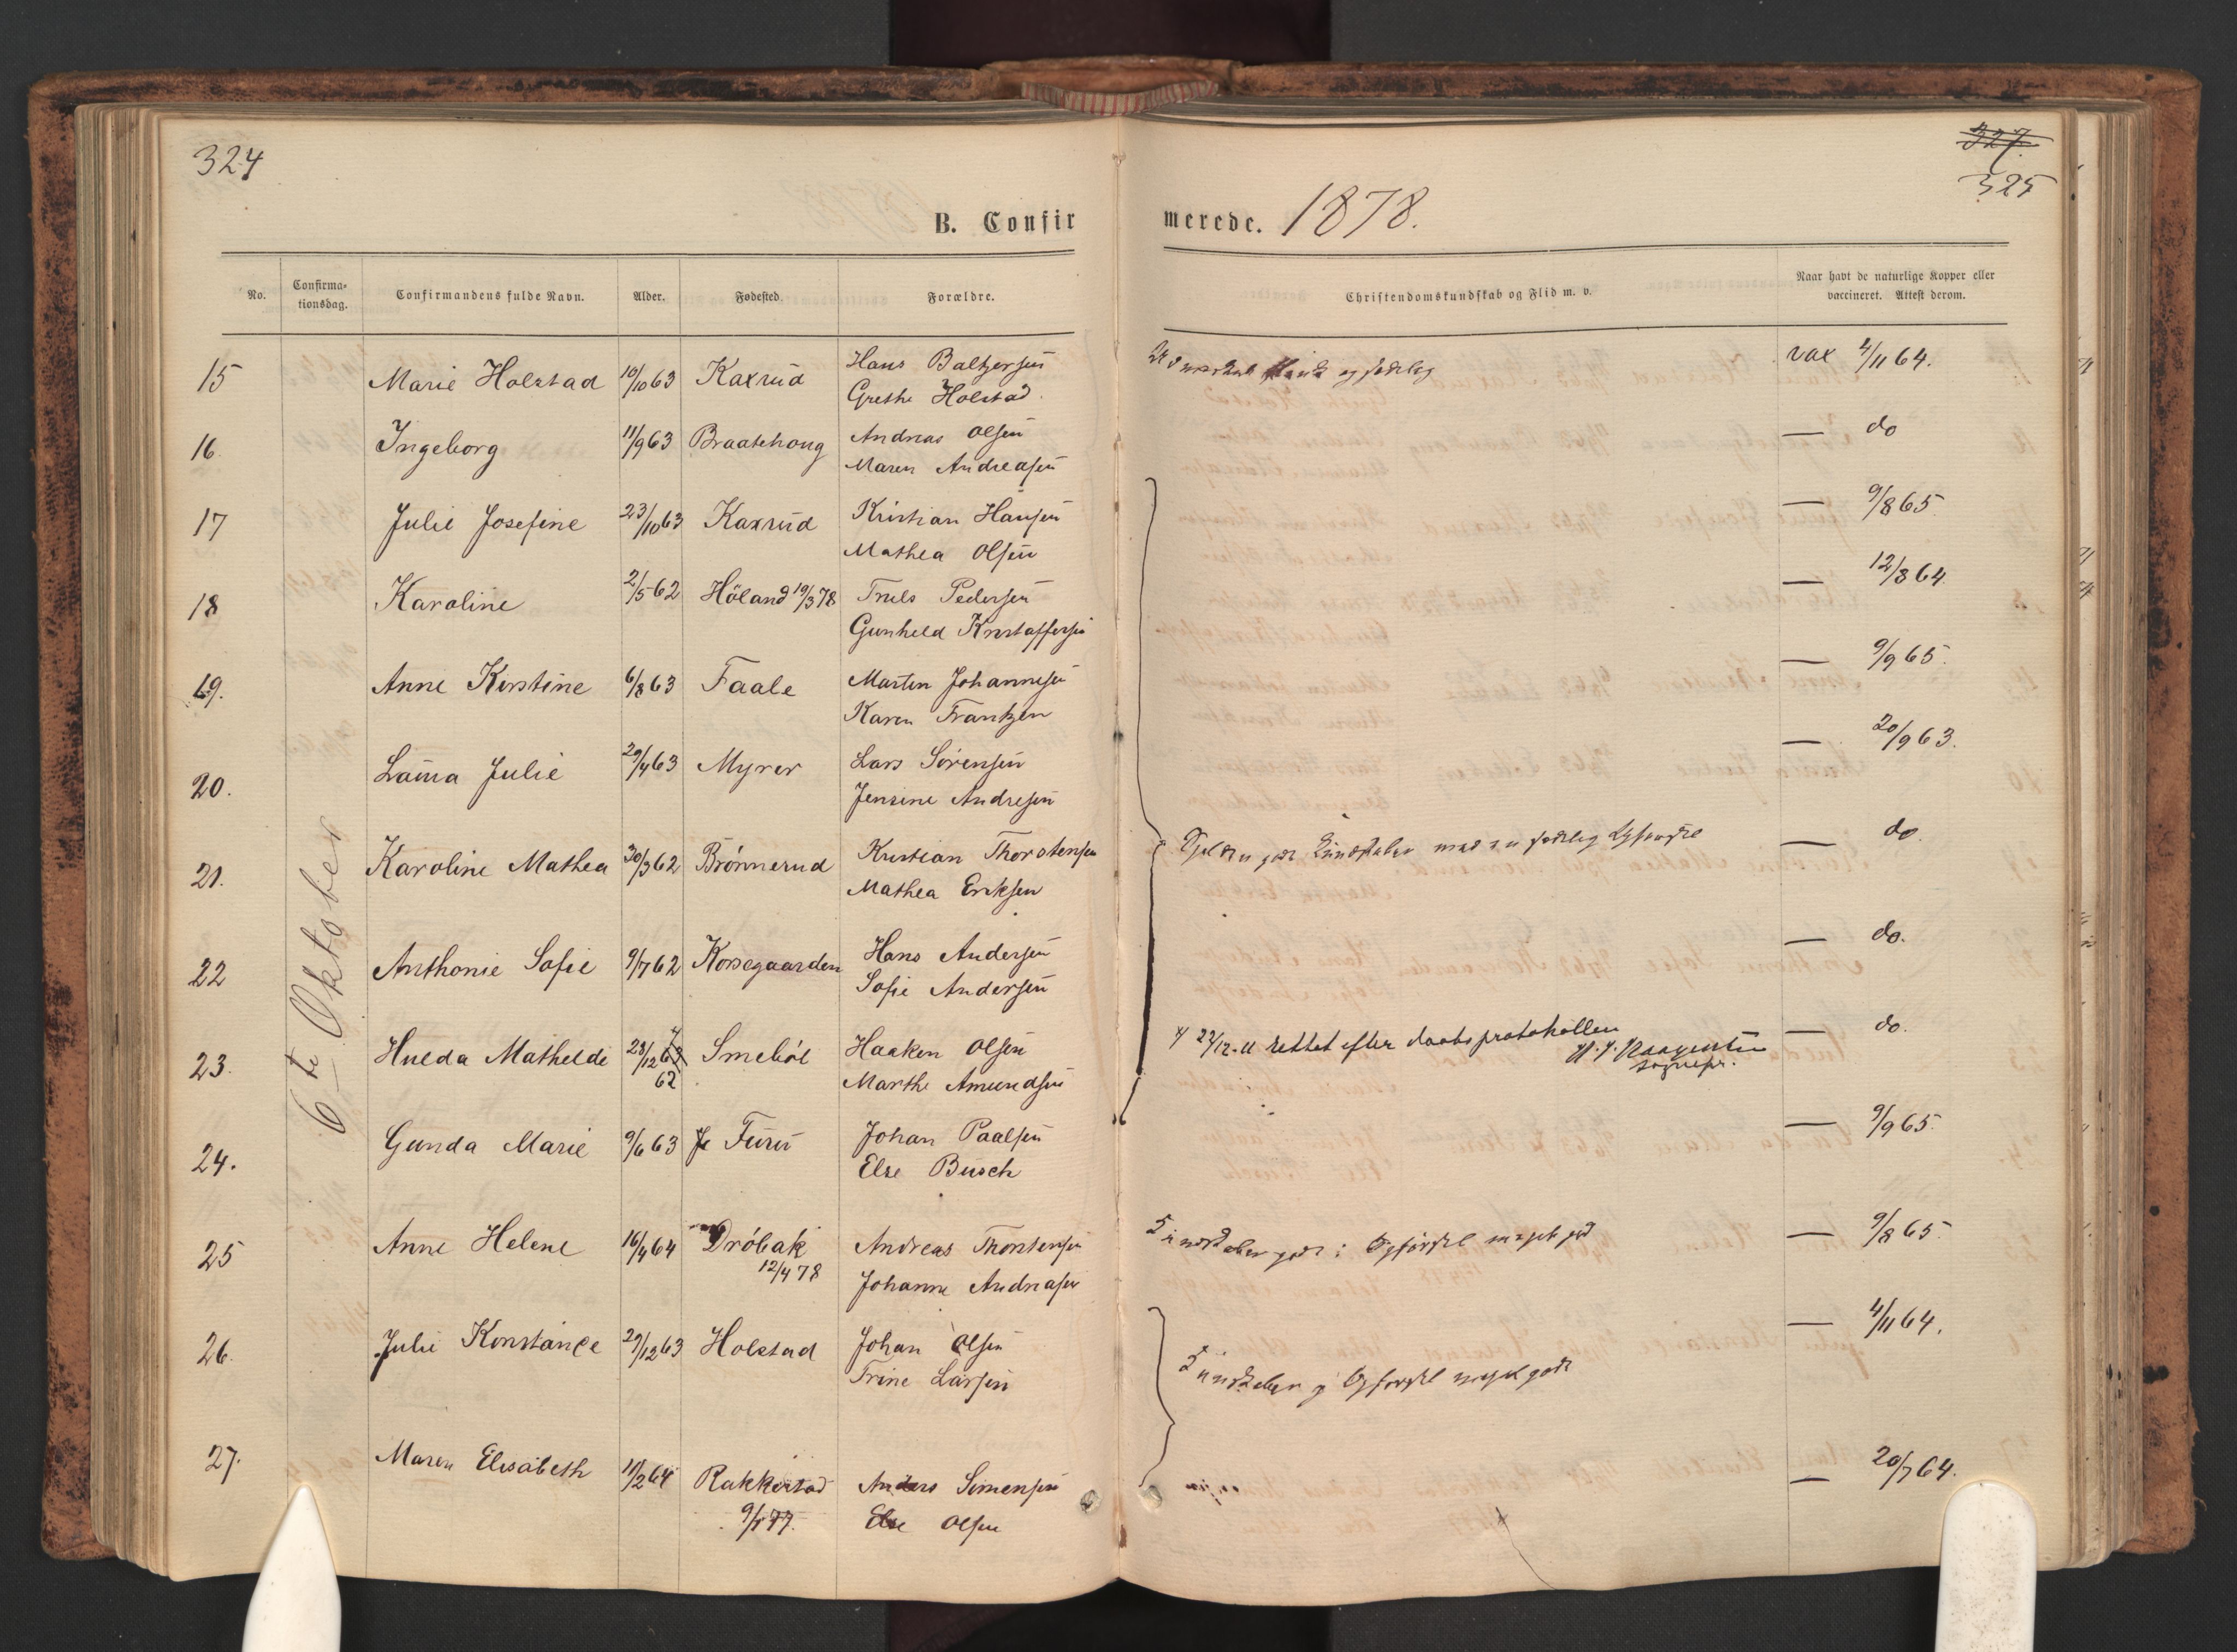 324
327.
325
B. Confir
merede. 1878.
No. Confirma-
tionsdag. Confirmandens fulde Navn. Alder. Fødested. Forældre. Christendomskundskab og Flid m. v. Naar havt de naturlige Kopper eller
vaccineret. Attest derom.
6te Oktober
15 Marie Holstad 10/10 63 Kaxrud Hans Baltzersen vax 4/11 64.
Grethe Holstad.
16. Ingeborg 11/9 63 Braatehoug Andreas Olsen — do
Maren Andreasen
17 Julie Josefine 23/10 63 Kaxrud Kristian Hansen — 9/8 65
Mathea Olsen
18 Karoline 2/5 62 Höland 19/3 78 Truls Pedersen — 12/8 64
Gunhild Kristoffersen
19. Anne Kirstine 6/8 63 Faale Martin Johannesen — 9/9 65.
Karen Frantzen
20. Laura Julie 29/4 63 Myrer Lars Sörensen — 20/9 63.
Jensine Andresen
21. Karoline Mathea 30/3 62 Brónnerud Kristian Thorstensen — do.
Mathea Eriksen
22 Anthonie Sofie 9/7 62 Korsegaarden Hans Andersen — do.
Sofie Andersen
23. Hulda Mathilde 28/12 63 Smeból Haaken Olsen rettet efter daabsprotokollen — do.
62 Marthe Amundsen sognepr.
24. Gunda Marie 9/6 63 Furu Johan Paalsen — 9/9 65.
Else Busch
25 Anne Helene 16/4 64 Dróbak Andreas Thorstensen Kundskaber godt; Opförsel meget god — 9/8 65
12/4 78 Johanne Andreasen
26. Julie Konstance 29/12 63 Holstad Johan Olsen — 4/11 64.
Trine Larsen
Kundskaber og Opførsel meget godt
27. Maren Elisabeth 11/2 64 Rakkestad Anders Simensen — 20/7 64.
9/1 77. Else Olsen